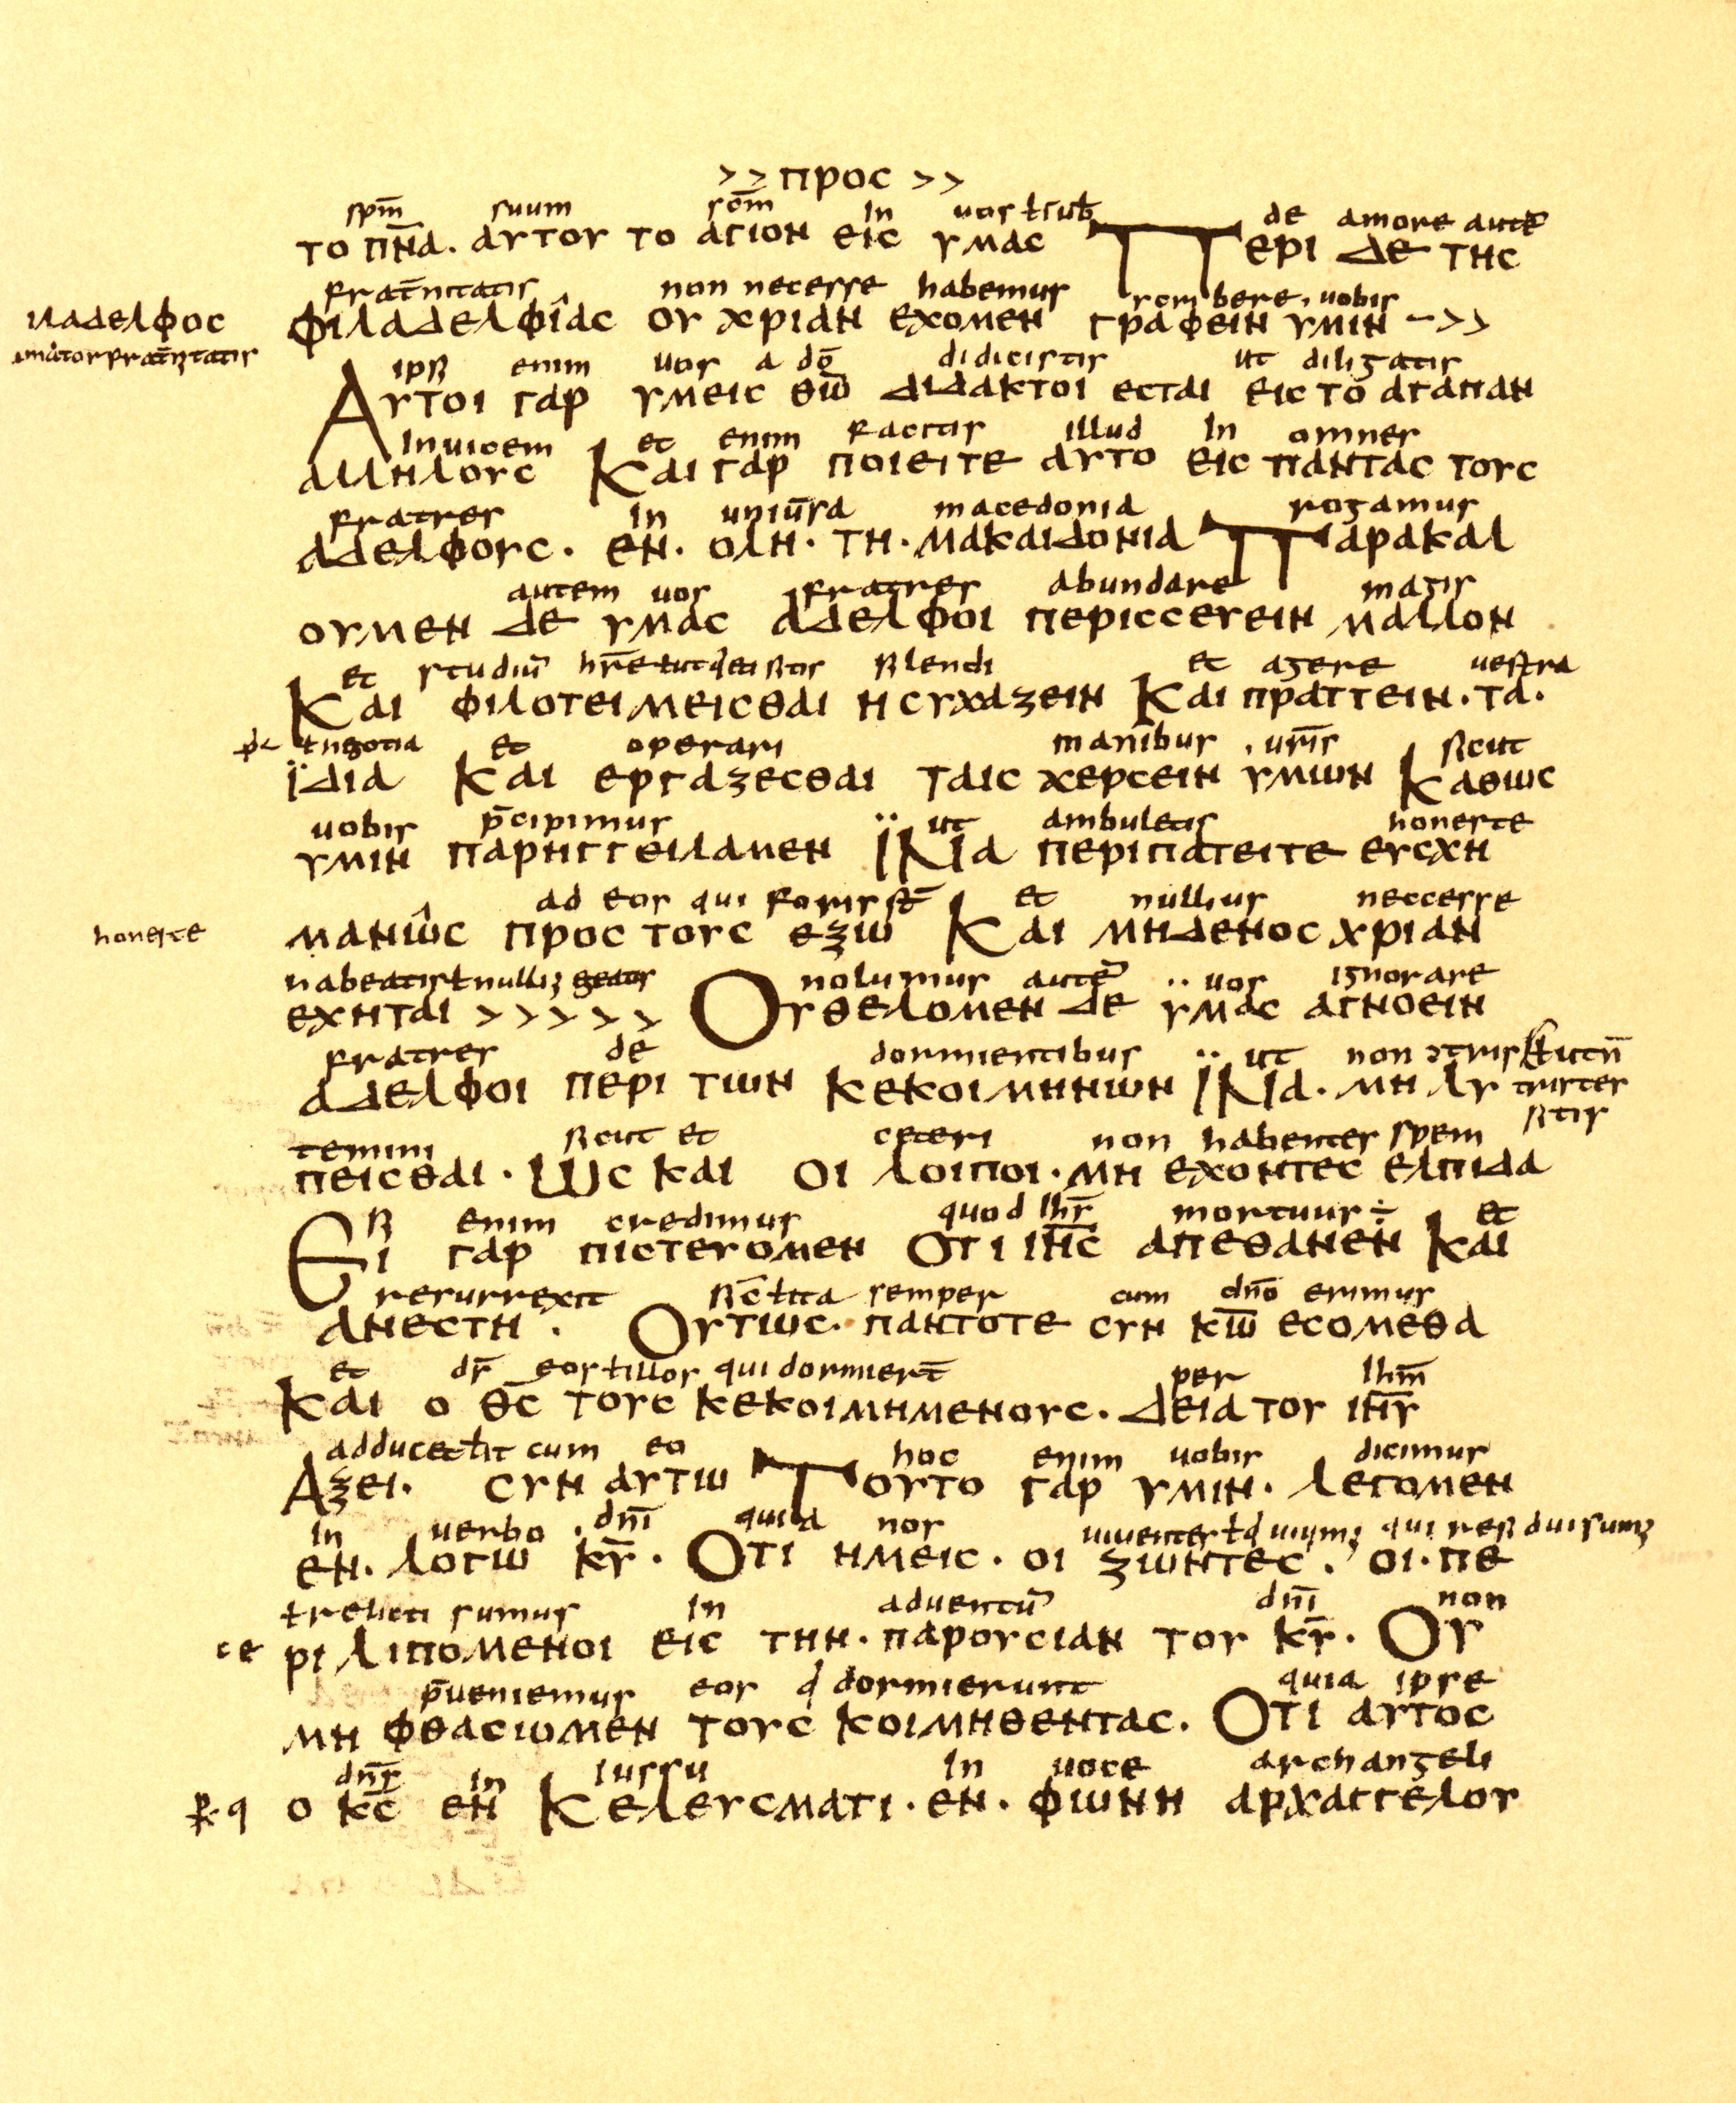 >> προc >>
spm̄ suum sc̄m in uos ł ī uob̄ de amore autē
το π̅ν̅α̅. αυτου το αγιονειc υμαc Περι δε τηc
fraternitatis non necesse habemus scribere uobis
Φιλαδελφιαc ου χριαν εχομεν γραφειν υμιν ->>
ιλαδελφοc
amator fraternitatis
ipsi enim uos a dō didicistis ut diligatis
Αυτοι γαρ υμειc θ̅ω̅ διδακτοι εcται ειc το αγαπαν
inuicem et enim facitis illud in omnes
αλληλουc Και γαρ ποιειτε αυτο ειc πανταc τουc
fratres in uniūsa macedonia rogamus
αδελφουc · εν · ολη · τη · μακαιδονια Παρακαλ
autem uos fratres abundare magis
ουμεν δε υμαc αδελφοι περιccευειν μαλλον
et studiū silendi et agere uestra
Και φιλοτειμειcθαι ηcυχαζειν Και πραττειν · τα ·
ł negotia et operari manibus uris̄ sicut
ϊδια Και εργαζεcθαι ταιc χερcειν υμων Καθωc
uobis p̄cipimus ut ambuletis honeste
υμιν παρηγγειλαμεν ϊΝα περιπατειτε ευcχη
ad eos qui foris st̄ et nullius neccesse
honeste
μανωc προc τουc εξω Και μηδενοc χριαν
habeatis ł nulli geatis nolumus autē uos ignorare
εχηται >>>>> Ου θελομεν δε ϋμαc αγνοειν
fratres de dormientibus ut non
αδελφοι περι των κεκοιμηνων ϊΝα · μη λυ
tristes
sitis
temini sicut et ceteri non habentes spem
πειcθαι · Ωc και οι λοιποι · μη εχοντεc ελπιδα
si enim credimus quod ihs̄ mortuus ÷ et
Ει γαρ πιcτευομεν Οτι ι̅η̅c̅ απεθανεν Και
resurrexit sic̄ ł ita semper cum dnō erimus
ανεcτη · Ουτωc · παντοτε cυν κ̅ω̅ εcομεθα
et ds̄ eos ł illos qui dormiert̄ per ihm̄
Και ο θ̅c̅ τουc κεκοιμημενουc · Δεια του ι̅η̅υ̅
adducet cum eo hoc enim uobis dicimus
Αξει · cυν αυτω Τουτο γαρ υμιν · λεγομεν
in uerbo dnī quia nos uiuentes ł q uiuim; qui residui sum;
εν · λογω κ̅υ̅ · Οτι ημειc · οι ζωντεc · οι · πε
ł relicti sumus in aduentū dnī non
ριλιπομενοι ειc την · παρουcιαν του κ̅υ̅ · Ου
p̄ueniemus eos q dormierunt quia ipse
μη φθαcωμεν τουc κοιμηθενταc · Οτι αυτοc
dns̄ in iussu in uoce archangeli
ο κ̅c̅ εν Κελευcματι · εν · φωνη αρχαγγελου